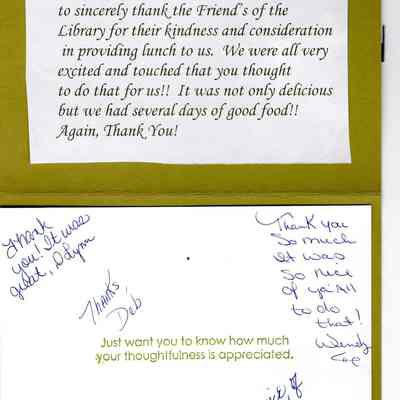 to sincerely thank the Friend's of the
Library for their kindness and consideration
in providing lunch to us. We were all very
excited and touched that you thought
to do that for us!! It was not only delicious
but we had several days of good food!!
Again, Thank You!
Thank
you! It was
great, D Lynn
Thanks
Deb
Thank you
So much
It was
So nice
of ya'All
to do
that!
Wendy
Just want you to know how much
your thoughtfulness is appreciated.